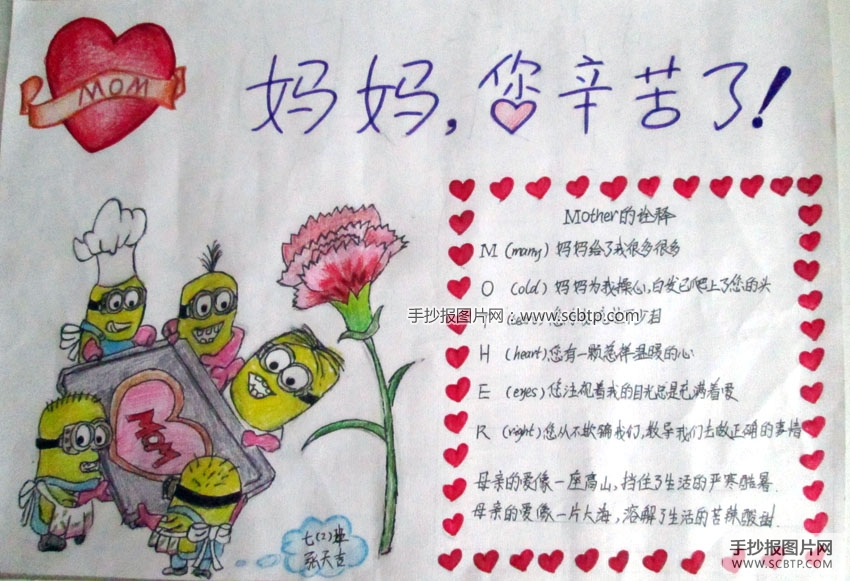 MOM
妈妈,您辛苦了!
Mother的诠释
M (many) 妈妈给了我很多很多
O (old) 妈妈为我操心,白发已爬上了您的头
手抄报图片网:www.scbtp.com
H (heart)您有一颗慈祥温暖的心
E (eyes)您注视着我的目光总是充满着爱
R (right)您从不欺骗我们,教导我们去做正确的事情
母亲的爱像一座高山,挡住了生活的严寒酷暑.
母亲的爱像一片大海,溶解了生活的苦辣酸甜.
MOM
七(2)班
张天吉
手抄报图片网
WWW.SCBTP.COM